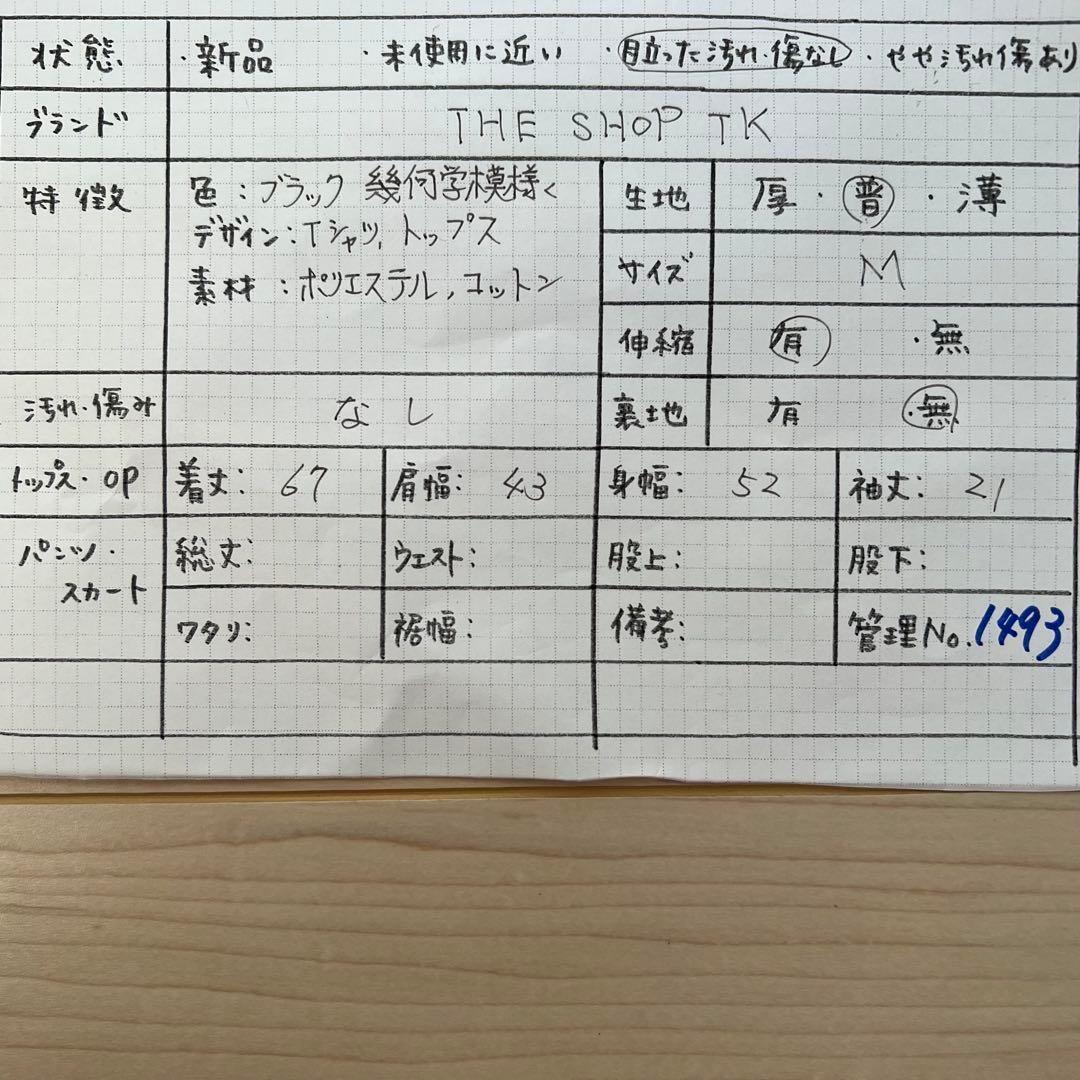 状態 ・新品 ・未使用に近い ・目立った汚れ・傷なし ・やや汚れ傷あり
ブランド THE SHOP TK
特徴 色：ブラック 幾何学模様く
デザイン：Tシャツ，トップス
素材：ポリエステル，コットン
生地 厚・普・薄
サイズ M
伸縮 有 ・無
汚れ・傷み なし
裏地 有 ・無
トップス・OP 着丈：67 肩幅：43 身幅：52 袖丈：21
パンツ・スカート 総丈： ウェスト： 股上： 股下：
ワタリ： 裾幅： 備考： 管理No.1493